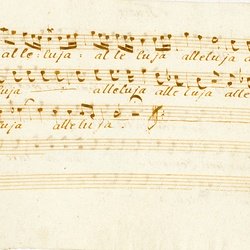 alle luja alle luja alleluja a
luja alleluja alle luja alle
luja alleluja.